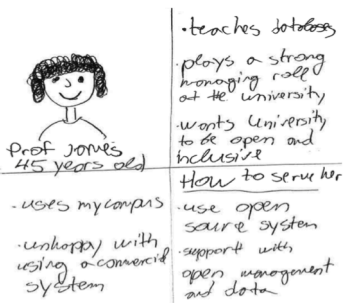 Prof Jones
45 years old
• teaches databases
• plays a strong
managing roll
at the university
• wants University
to be open and
inclusive
• uses mycampus
• unhappy with
using a commercial
system
How to serve her
• use open
source system
• support with
open management
and data